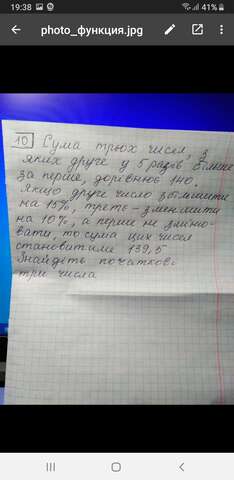 19:38
41%
photo_функция.jpg
10 Сума трьох чисел, з
яких друге у 5 разів більше
за перше, дорівнює 140.
Якщо друге число збільшити
на 15%, третє - зменшити
на 10%, а перше не займо-
вати, то сума цих чисел
становитиме 139,5
Знайдіть початкові
три числа